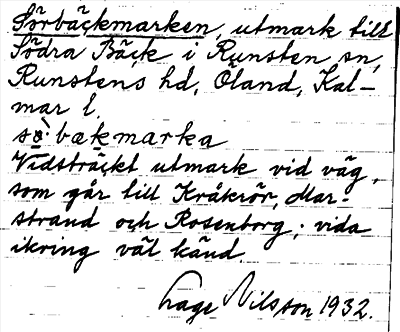 Sörbäckmarken, utmark till
Södra Bäck i Runsten sn,
Runstens hd, Öland, Kal-
mar l.
sö̀bækmarka
Vidsträckt utmark vid väg,
som går till Kråkrör, Mar-
strand och Rosenborg; vida
ikring väl känd.
Lage Nilsson 1932.